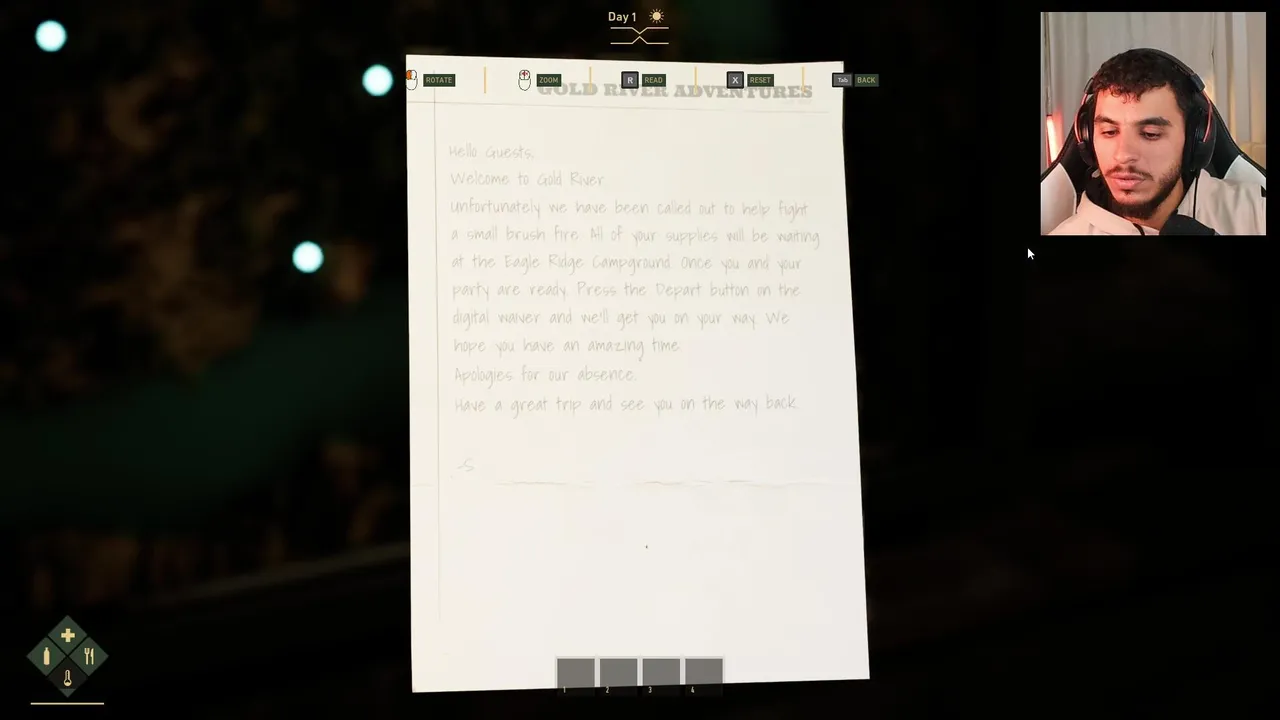 Day 1
ROTATE
ZOOM
R READ
X RESET
Tab BACK
GOLD RIVER ADVENTURES
Hello Guests,
Welcome to Gold River
Unfortunately we have been called out to help fight
a small brush fire. All of your supplies will be waiting
at the Eagle Ridge Campground. Once you and your
party are ready. Press the Depart button on the
digital waiver and we'll get you on your way. We
hope you have an amazing time.
Apologies for our absence.
Have a great trip and see you on the way back.
-S
1 2 3 4